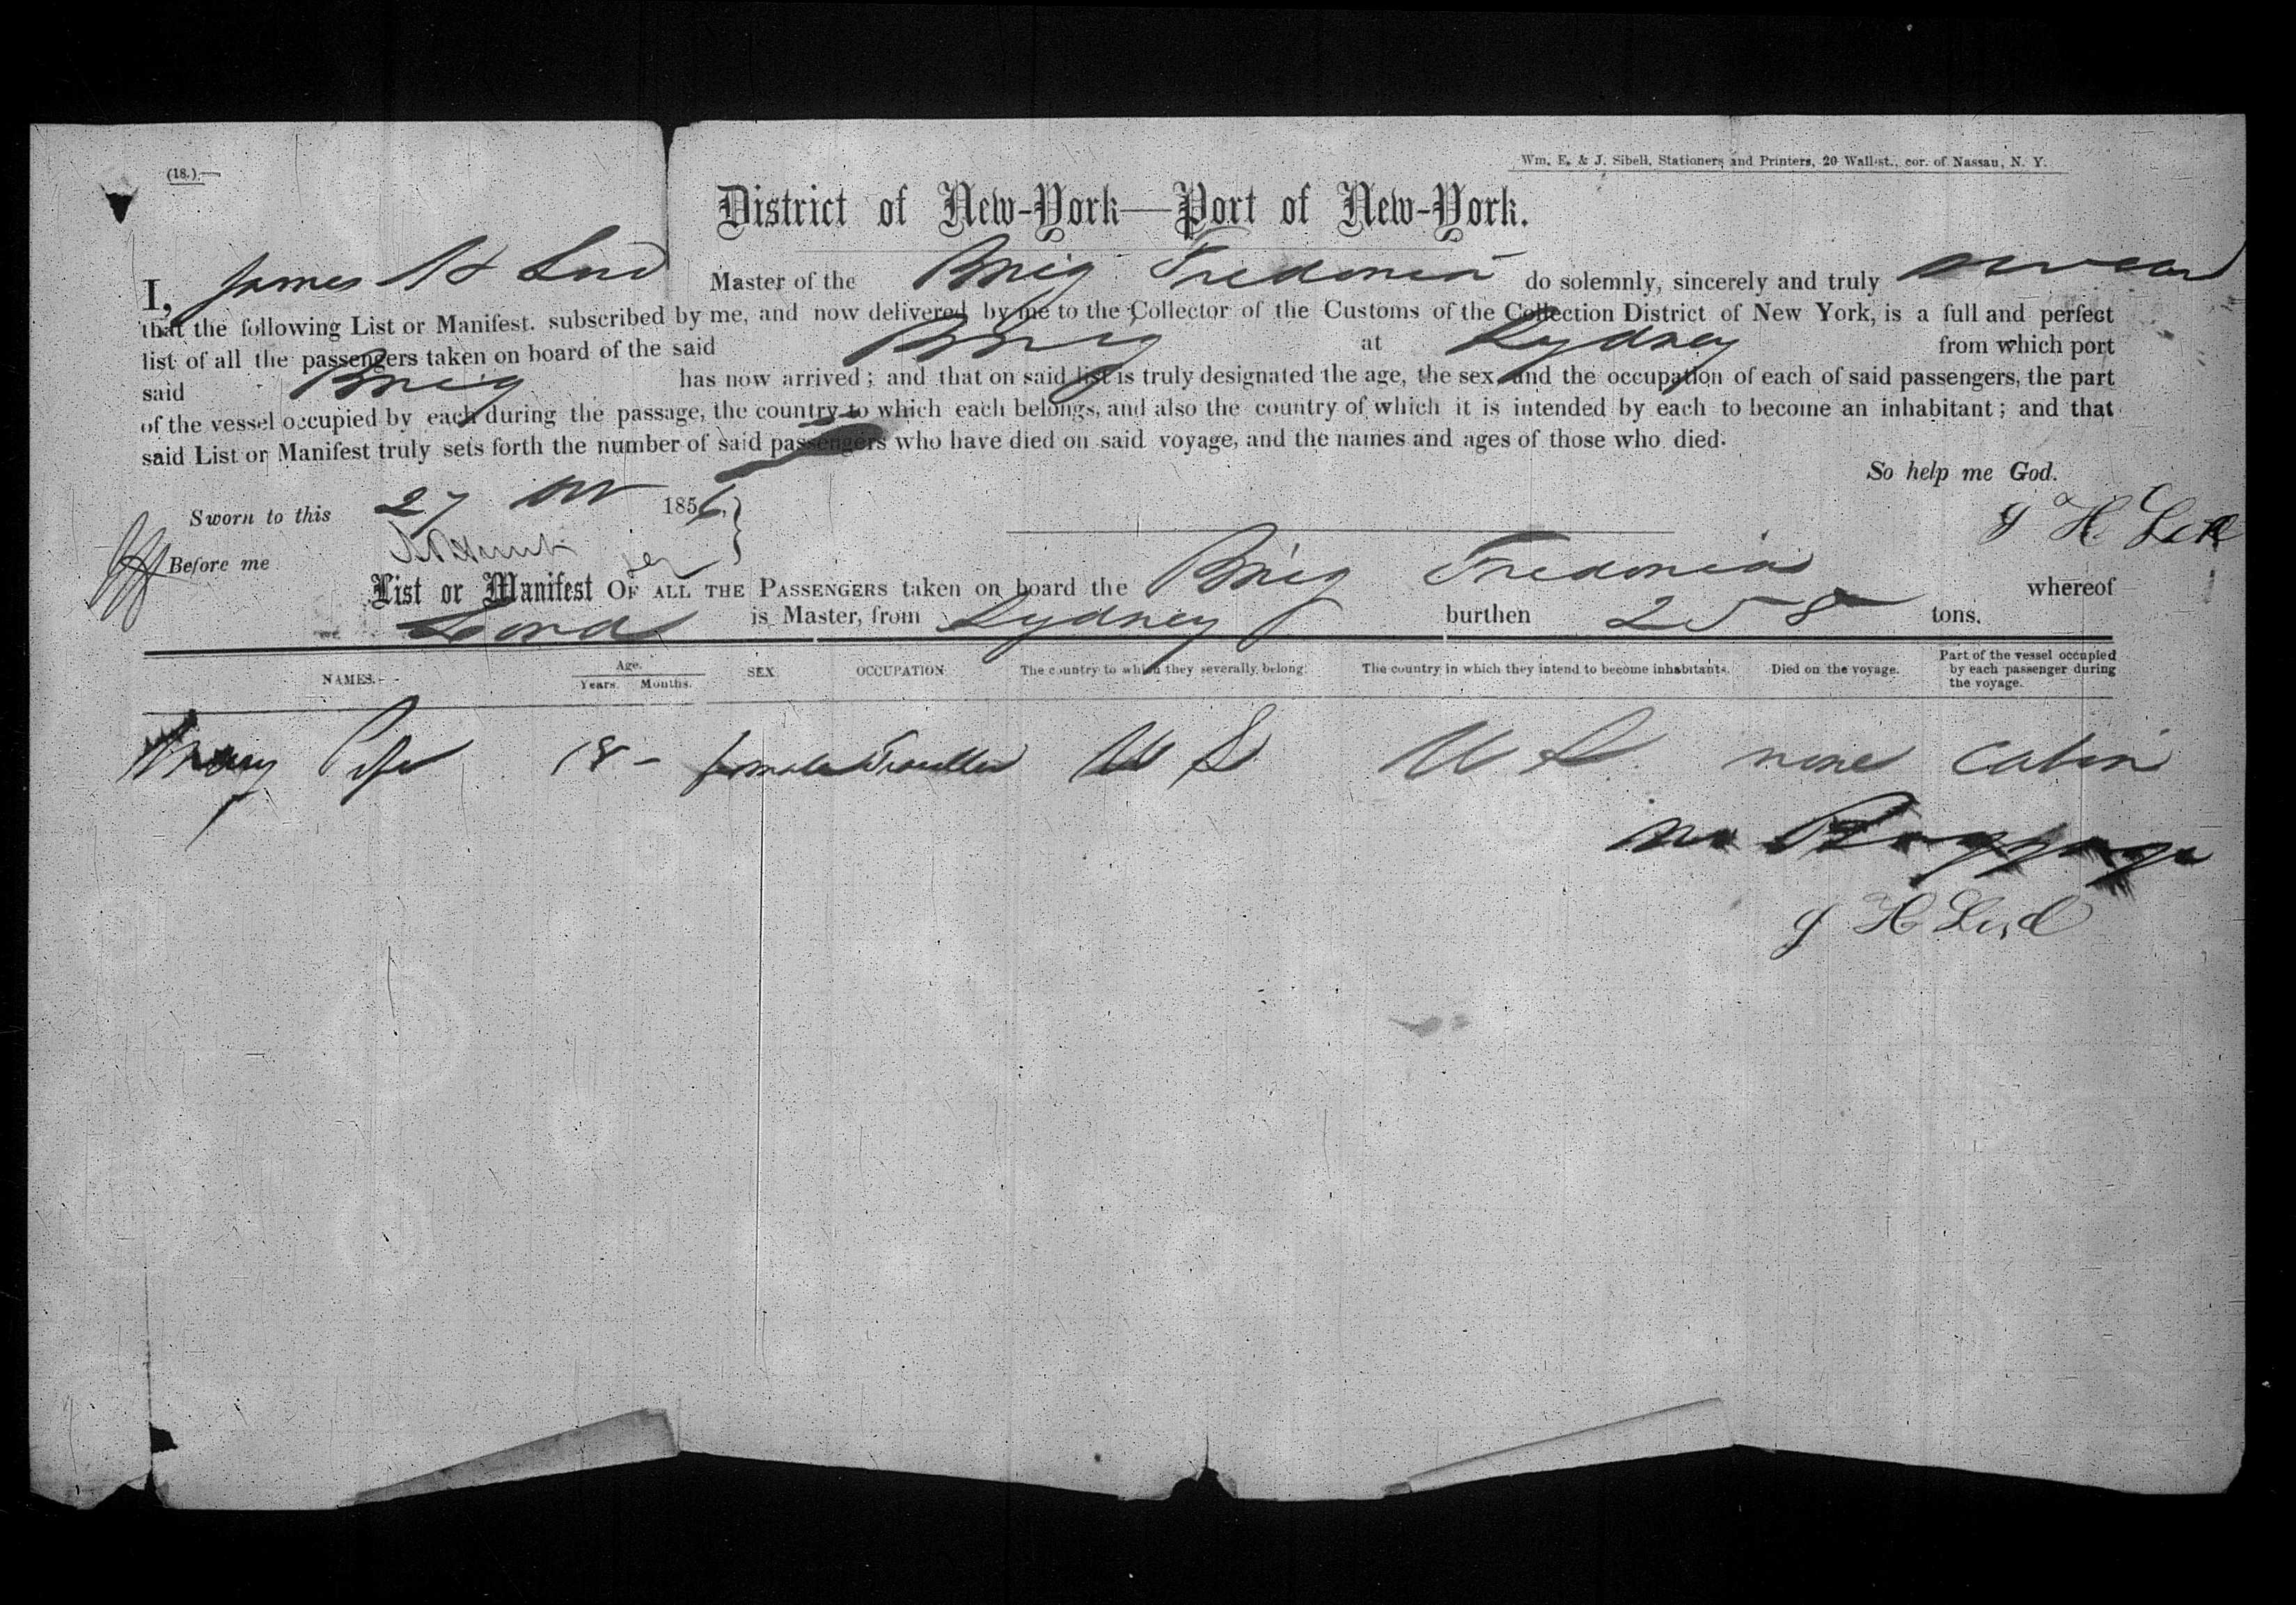 (18.)
Wm. E. & J. Sibell, Stationers and Printers, 20 Wall-st., cor. of Nassau, N. Y.
District of New-York—Port of New-York.
I, James H Lord Master of the Brig Fredonia do solemnly, sincerely and truly swear
that the following List or Manifest. subscribed by me, and now delivered by me to the Collector of the Customs of the Collection District of New York, is a full and perfect
list of all the passengers taken on board of the said Brig at Sydney from which port
said Brig has now arrived; and that on said list is truly designated the age, the sex and the occupation of each of said passengers, the part
of the vessel occupied by each during the passage, the country to which each belongs, and also the country of which it is intended by each to become an inhabitant; and that
said List or Manifest truly sets forth the number of said passengers who have died on said voyage, and the names and ages of those who died.
So help me God.
Sworn to this 27 1856,
J H Lord
Before me
List or Manifest OF ALL THE PASSENGERS taken on board the Brig Fredonia whereof
Lord is Master, from Sydney burthen 258 tons.
NAMES. Age. Years. Months. SEX OCCUPATION The country to which they severally belong. The country in which they intend to become inhabitants. Died on the voyage. Part of the vessel occupied by each passenger during the voyage.
Mary 18 - female Traveller U S U S none Cabin
no Baggage
J H Lord